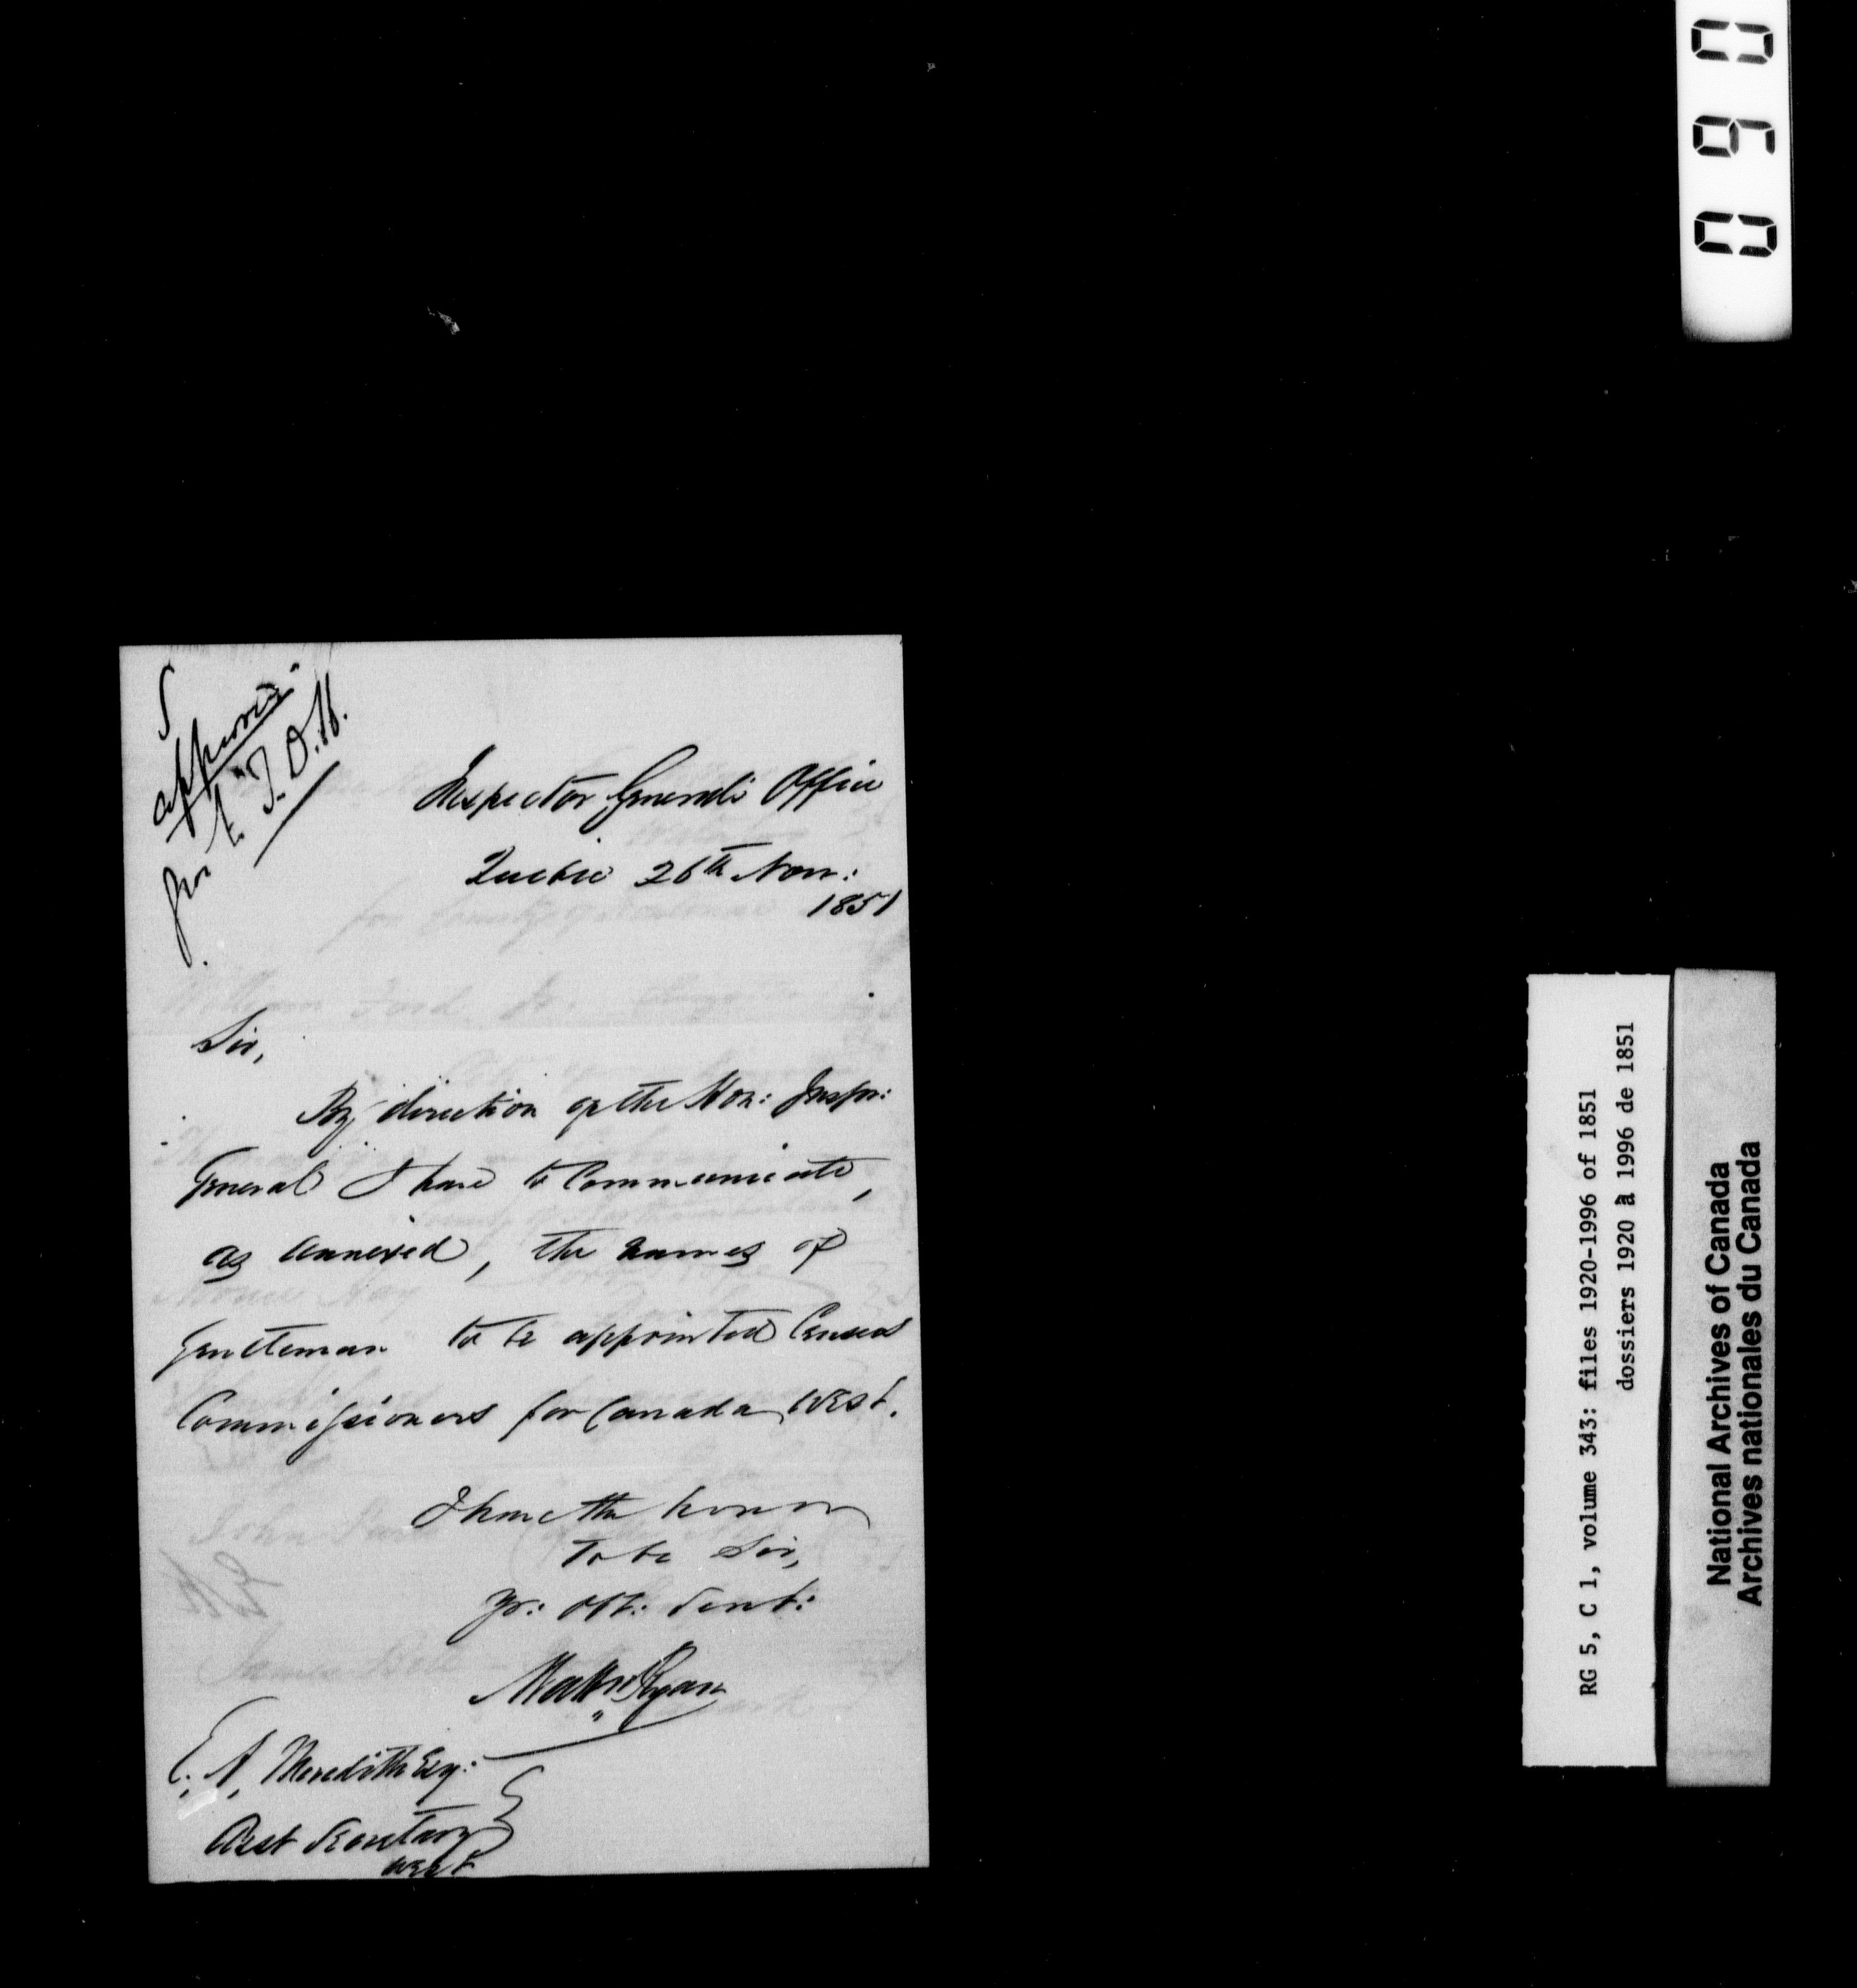 S
approved
for
Inspector Generals Office
Quebec 26th Nov:
1851
Sir,
By direction of the Hon: Inspr:
General I have to Communicate,
as annexed, the names of
Gentleman to be appointed Census
Commissioners for Canada West.
I have the honor
To be Sir,
yr: obt: Servt:
Ryan
E. A. Meredith Esq:
Asst Secretary
West
060
RG 5, C 1, volume 343: files 1920-1996 of 1851
dossiers 1920 à 1996 de 1851
National Archives of Canada
Archives nationales du Canada